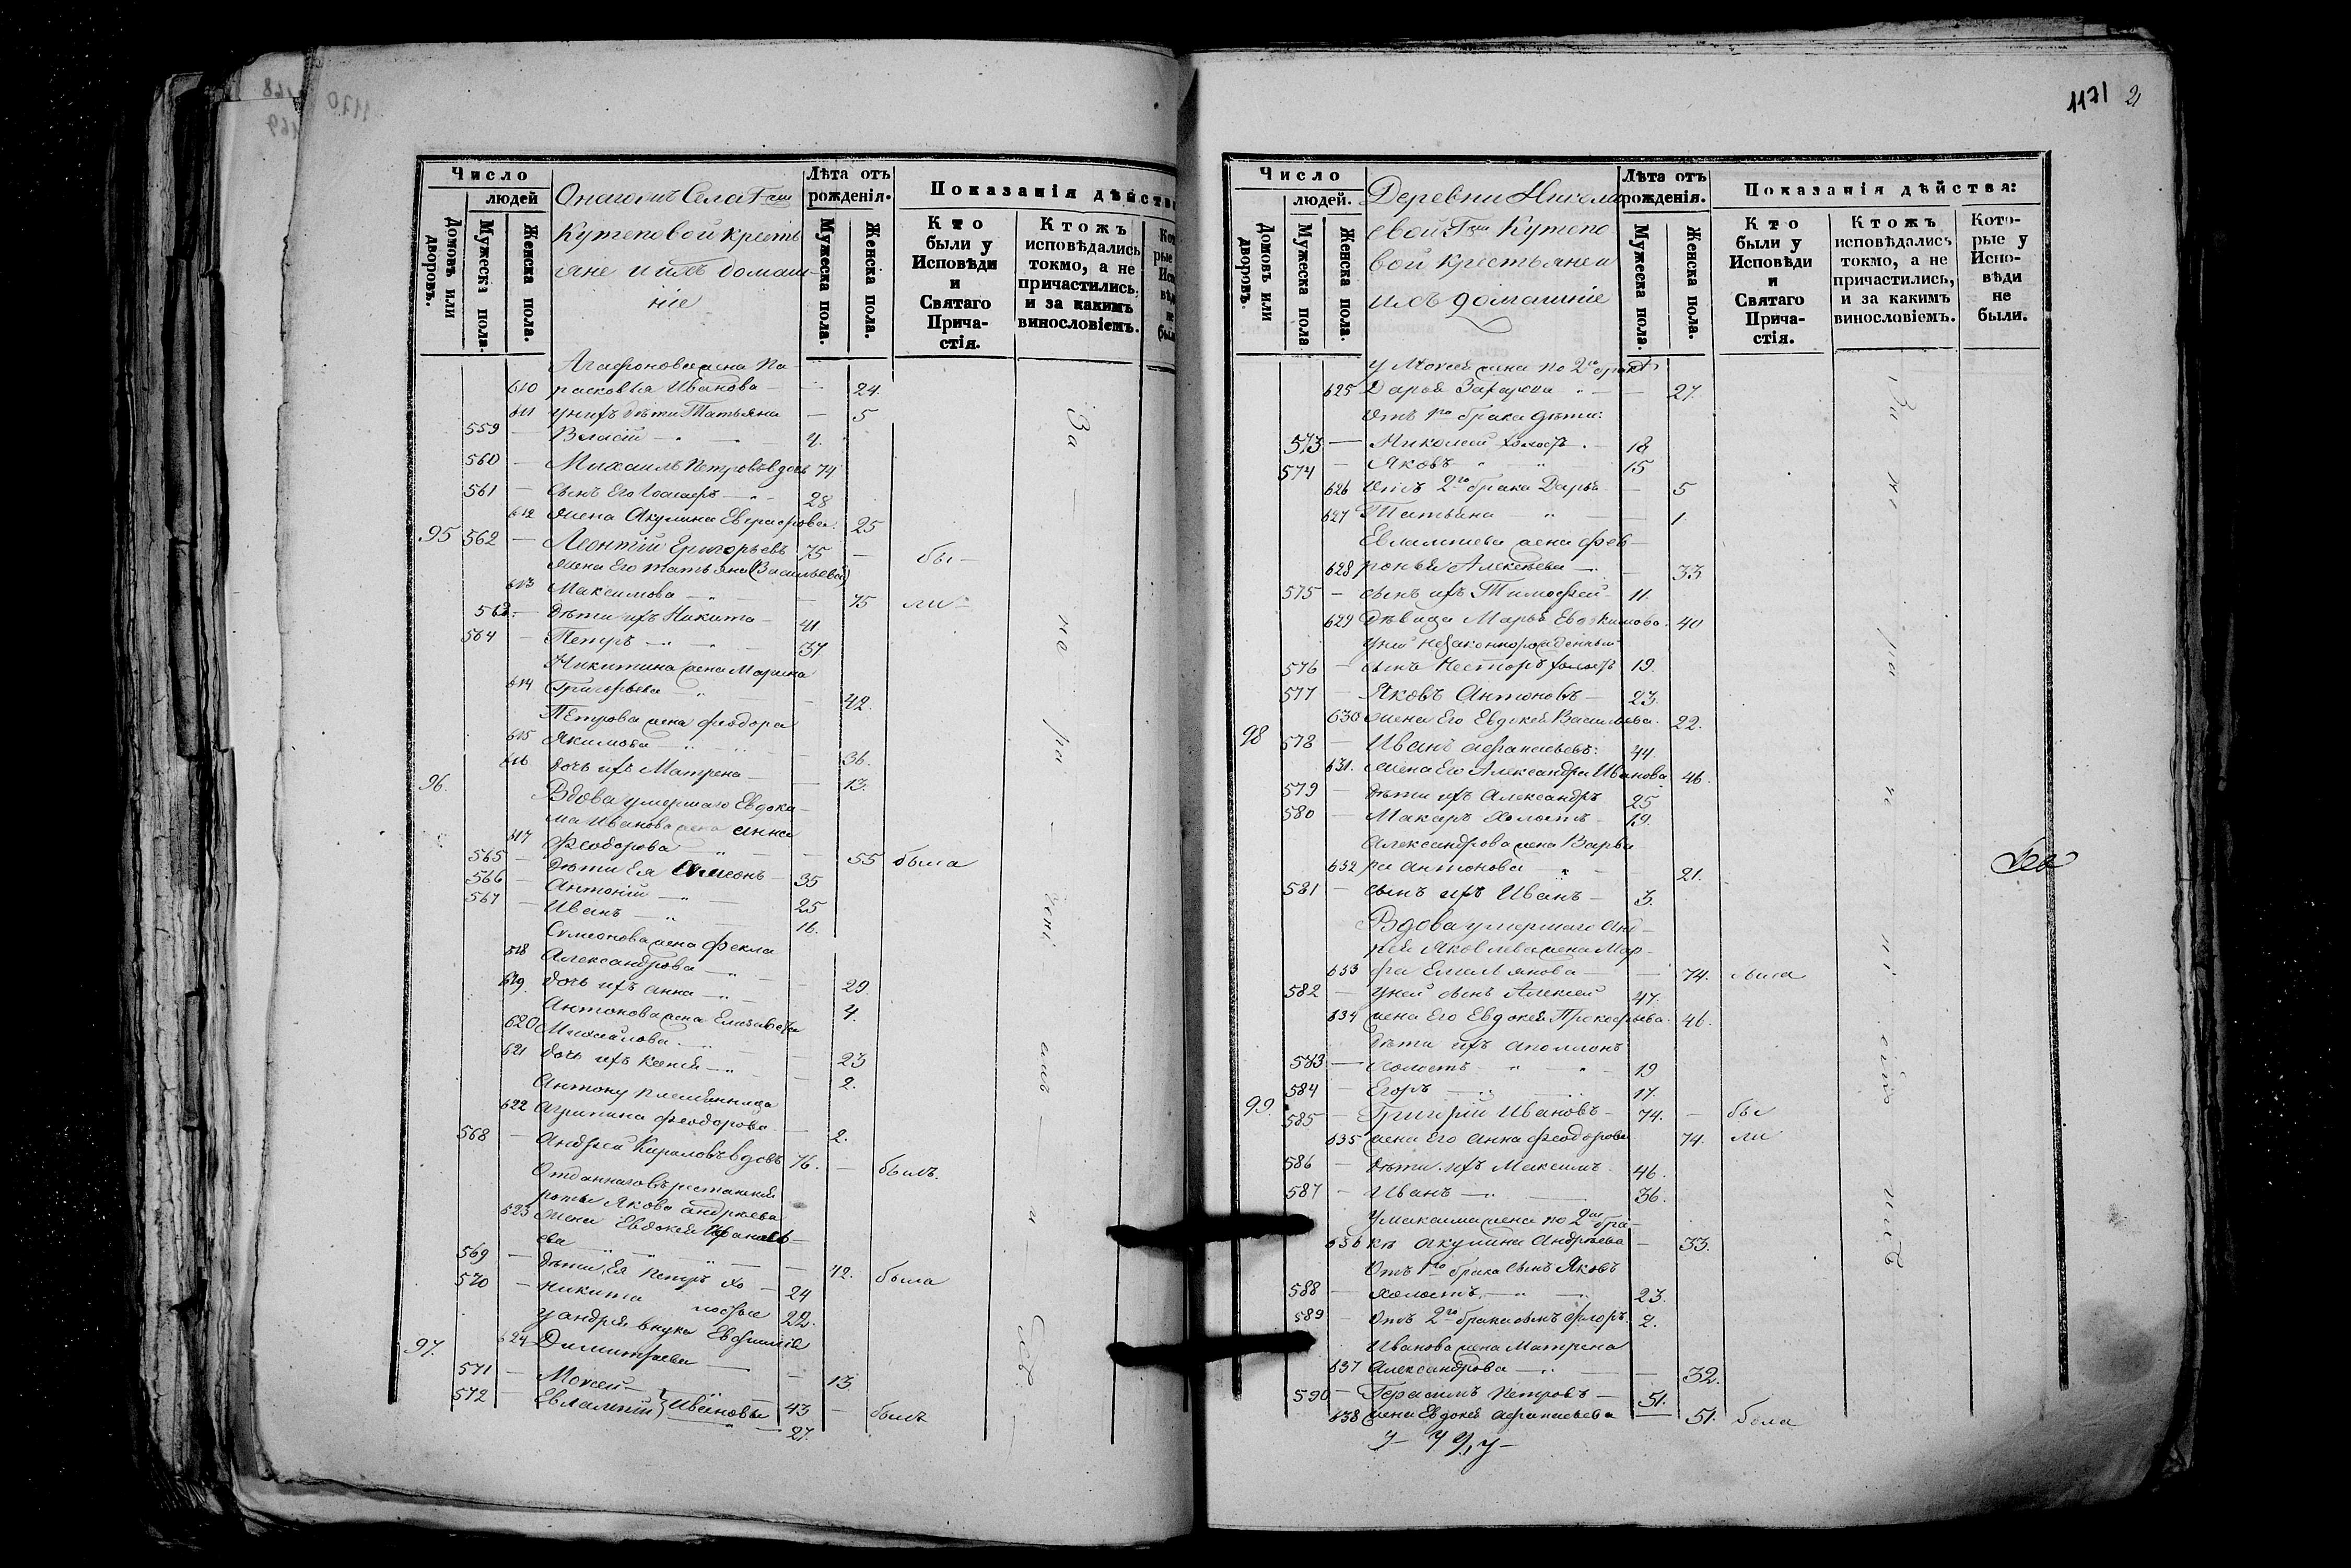 Число
людей
Домовъ или дворовъ.
Мужеска пола.
Женска пола.
Онагожъ Села Гжи
Кутеповой крестъ
яне и ихъ домаш
ніе
Лѣта отъ рожденія.
Мужеска пола.
Женска пола.
Показанія дѣйства
Кто были у Исповѣди и Святаго Причастія.
Ктожъ исповѣдались токмо, а не причастились, и за какимъ винословіемъ.
Агафонова жена Па
610 расковья Иванова — 24.
611 у нихъ дѣти Татьяна — 5
559 — Власій — 4.
560 — Михаилъ Петровъ вдовъ 74
561 — сынъ Его Іосифъ — 28
612 жена Акулина Евграфова 25
95 562 — Леонтій Григорьевъ 75 — бы —
жена Его Татьяна (Васильева)
613 Максимова — 75 ли —
563 — дѣти ихъ Никита — 41
564 — Петръ — 37
Никитина жена Марина
614 Григорьева — 42.
Петрова жена Феодора
615 Якимова — 36.
616 дочь ихъ Матрена — 13.
96. Вдова умершаго Евдоки-
ма Иванова жена Анна
617 Феодорова — 55 была
565 — дѣти Ея Симеонъ — 35
566 — Антоній — 25
567 — Иванъ — 16.
Симеонова жена Фекла
618 Александрова — 29
619. дочь ихъ Анна — 4.
Антонова жена Елизавета
620 Михайлова — 23
621 дочь ихъ Ксенія — 2.
Антону племянница
622 Агрипина Феодорова — 2.
568 — Андрей Кириловъ вдовъ 76. — былъ.
роты Якова Андреева
623 жена Евдокія Афанась-
ева — 42. была
569 — дѣти Ея Петръ хо — 24
570 — Никита лостые 22.
у Андрея внука Евфимія
97. 624 Димитріева — 13
571 — Моисей — 43 — былъ
572 — Евлампій } Ивановы — 27.
1171 21
Число
людей.
Домовъ или дворовъ.
Мужеска пола
Женска пола.
Деревни Никола
евой Гжи Кутепо
вой крестьяне и
ихъ домашніе
Лѣта отъ рожденія.
Мужеска пола.
Женска пола.
Показанія дѣйства:
Кто были у Исповѣди и Святаго Причастія.
Ктожъ исповѣдались токмо, а не причастились, и за какимъ винословіемъ.
Которые у Исповѣди не были.
у Моисея жена по 2му браку
625 Дарья Захарова — 27.
Отъ 1го брака дѣти:
573 — Николай холостъ — 18
574 — Яковъ 15
626 Отъ 2го брака Дарья — 5
627 Татьяна — 1.
Евлампіева жена Фев-
628 ронья Алексѣева — 33
575 — сынъ ихъ Тимофей 11.
629 Дѣвица Марья Евдокимова 40
у ней незаконнорожденный
576 — сынъ Несторъ холостъ 19.
577 — Яковъ Антоновъ — 23.
630 жена Его Евдокія Васильева. 22.
98 578 — Иванъ Афанасьевъ: 44
631. жена Его Александра Иванова 46.
579 — дѣти ихъ Александръ 25
580 — Макаръ холостъ — 19.
Александрова жена Варва
632 ра Антонова — 21.
581 — сынъ ихъ Иванъ — 3.
Вдова умершаго Анд-
рея Яковлева жена Мар-
633 фа Емельянова — 74. была
582 — у ней сынъ Алексей 47.
634 жена Его Евдокія Прокофьева. 46.
дѣти ихъ Аполлонъ
583 — холостъ 19
584 — Егоръ — 17.
99. 585 — Григорій Ивановъ — 74. — бы
635 жена Его Анна Феодорова 74. ли
586 — дѣти ихъ Максимъ 46.
587 — Иванъ — 36.
у Максима жена по 2му бра-
636 кѣ Акулина Андреева — 33.
Отъ 1го брака сынъ Яковъ
588 — холостъ, — 23.
589 — отъ 2го брака сынъ Флоръ. 2.
Иванова жена Матрена
637 Александрова — 32.
590 — Герасимъ Петровъ — 51.
638 жена Евдокія Афанасьева 51. была